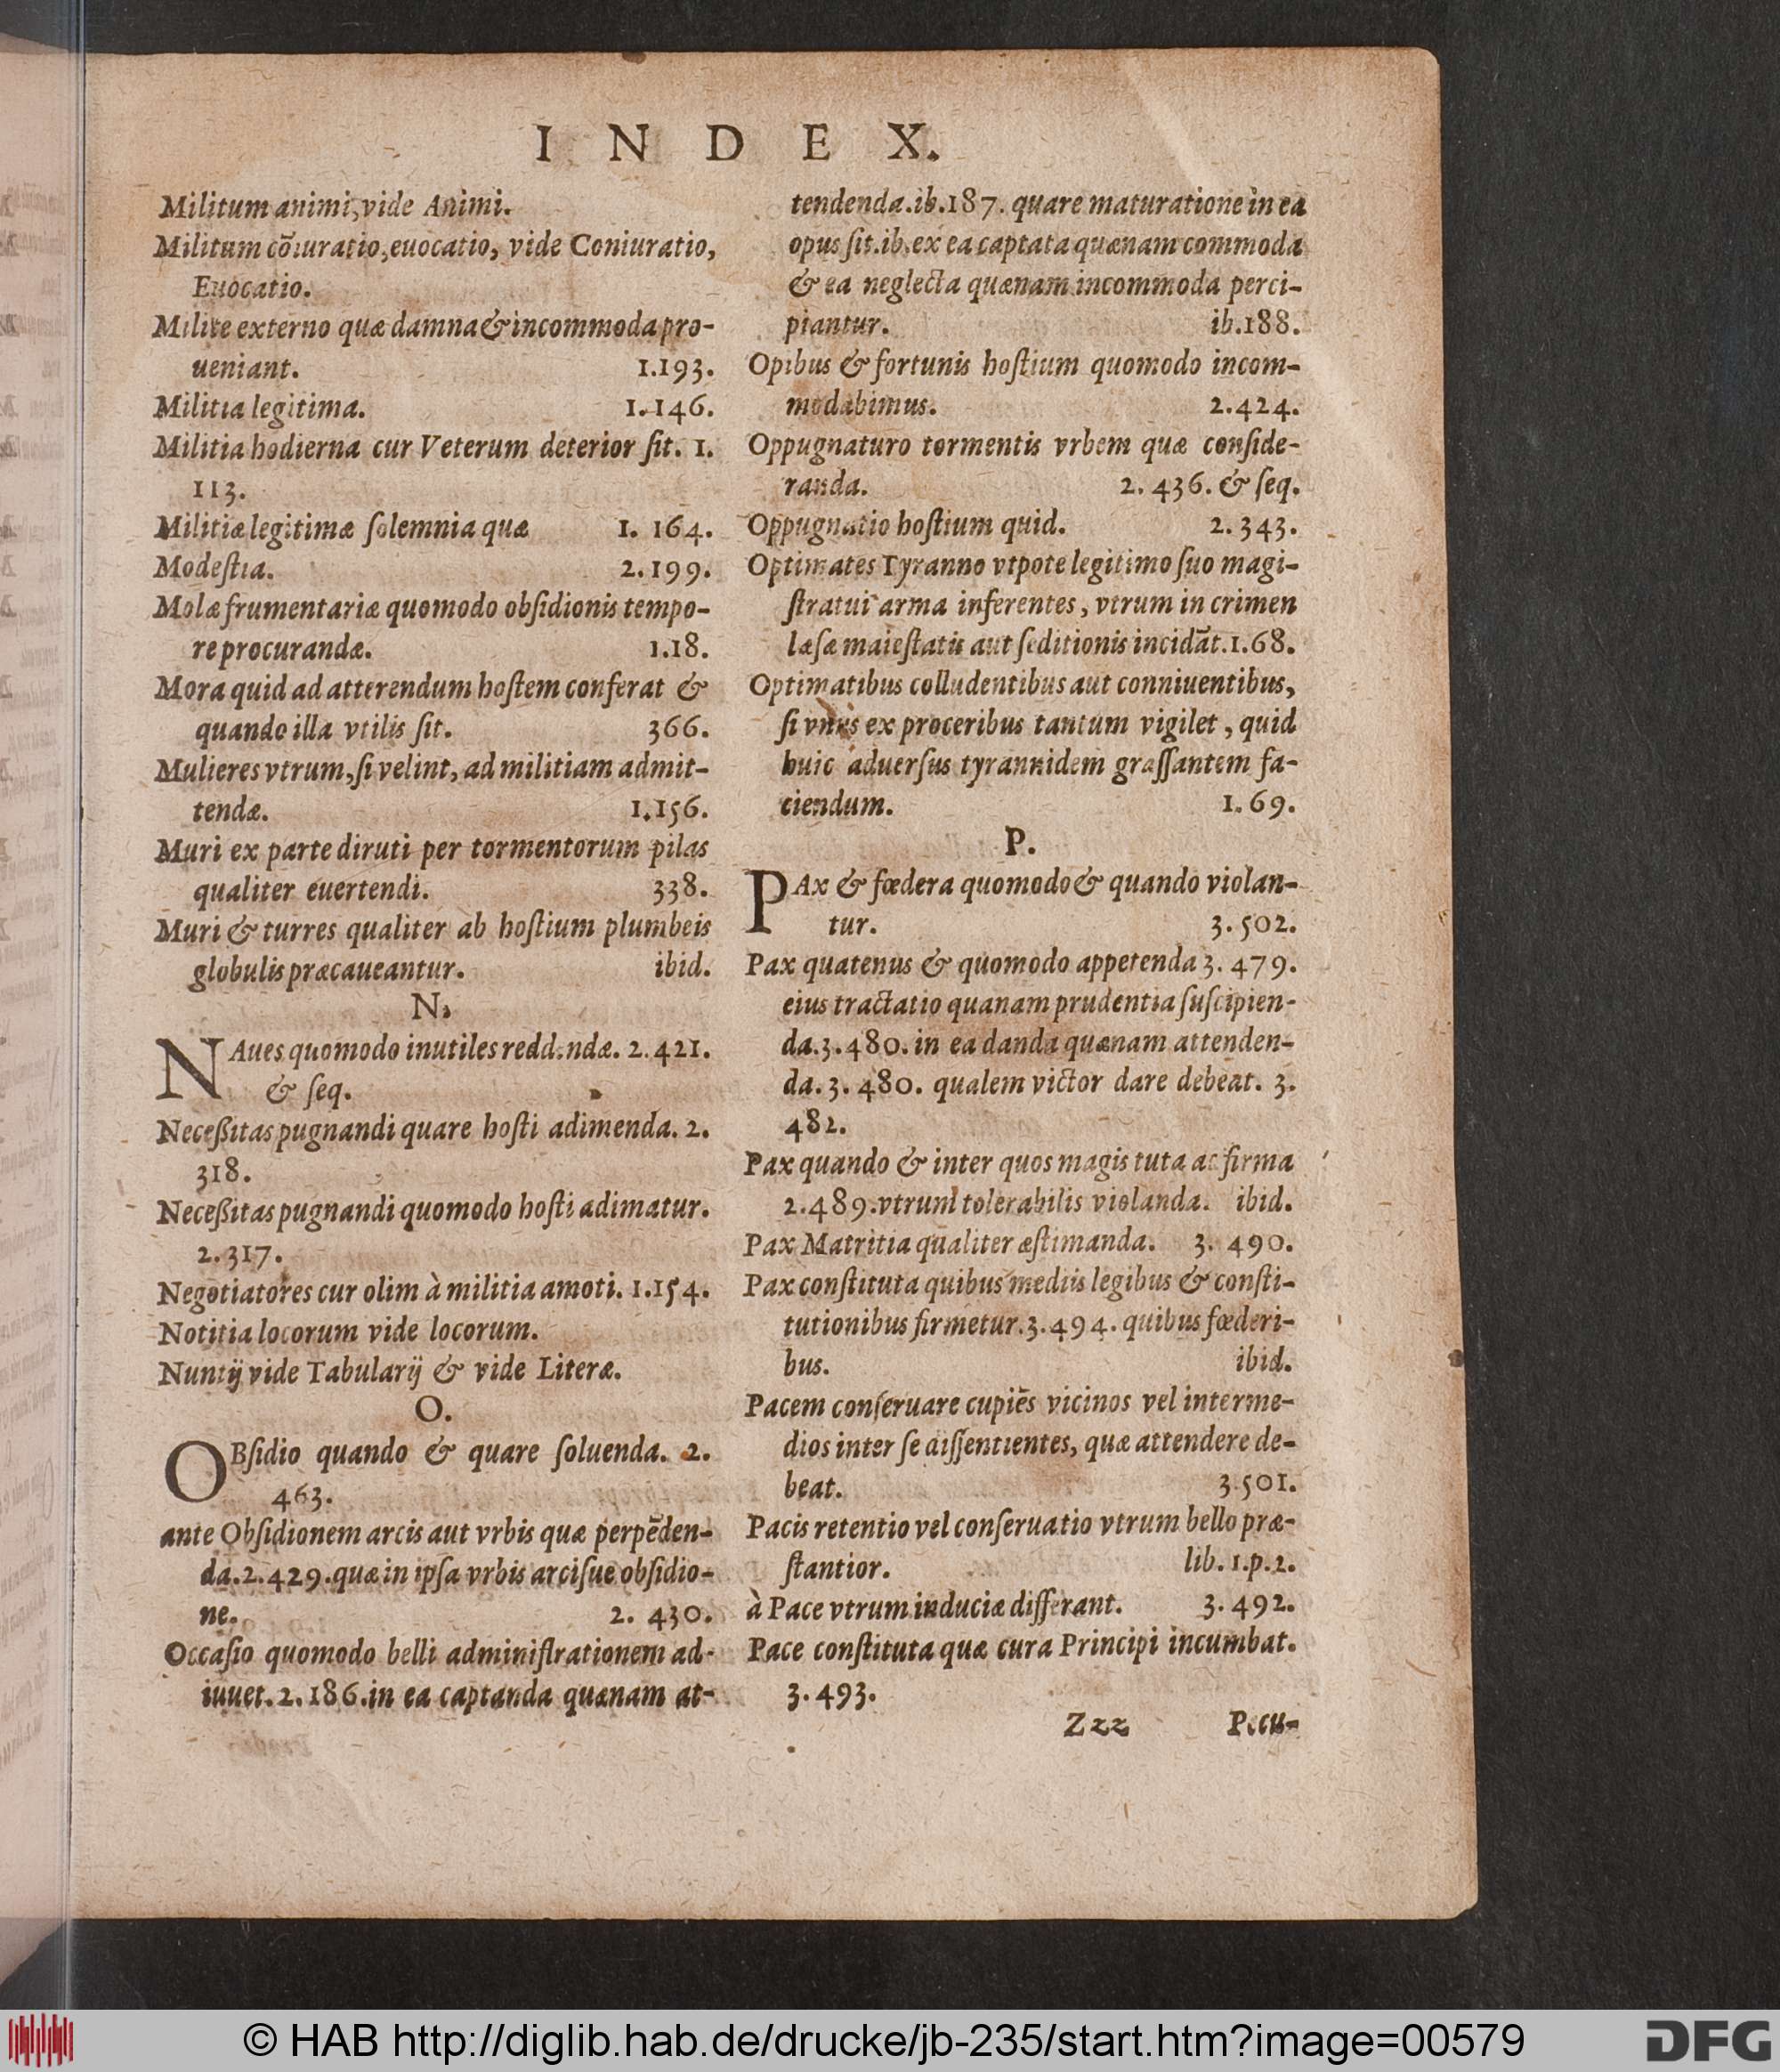 INDEX.
Militum animi, vide Animi.
Militum cõiuratio, euocatio, vide Coniuratio,
Euocatio.
Milite externo quæ damna & incommoda pro-
ueniant. 1.193.
Militia legitima. 1.146.
Militia hodierna cur Veterum deterior ſit. 1.
113.
Militiæ legitimæ ſolemnia quæ 1. 164.
Modeſtia. 2.199.
Molæ frumentariæ quomodo obſidionis tempo-
re procurandæ. 1.18.
Mora quid ad atterendum hoſtem conferat &
quando illa vtilis ſit. 366.
Mulieres vtrum, ſi velint, ad militiam admit-
tendæ. 1.156.
Muri ex parte diruti per tormentorum pilas
qualiter euertendi. 338.
Muri & turres qualiter ab hoſtium plumbeis
globulis præcaueantur. ibid.
N.
NAues quomodo inutiles reddendæ. 2.421.
& ſeq.
Neceßitas pugnandi quare hoſti adimenda. 2.
318.
Neceßitas pugnandi quomodo hoſti adimatur.
2.317.
Negotiatores cur olim à militia amoti. 1.154.
Notitia locorum vide locorum.
Nuntij vide Tabularij & vide Literæ.
O.
OBſidio quando & quare ſoluenda. 2.
463.
ante Obſidionem arcis aut vrbis quæ perpẽden-
da. 2.429. quæ in ipſa vrbis arciſue obſidio-
ne. 2. 430.
Occaſio quomodo belli adminiſtrationem ad-
iuuet. 2.186. in ea captanda quænam at-
tendenda. ib. 187. quare maturatione in ea
opus ſit. ib. ex ea captata quænam commoda
& ea neglecta quænam incommoda perci-
piantur. ib.188.
Opibus & fortunis hoſtium quomodo incom-
modabimus. 2.424.
Oppugnaturo tormentis vrbem quæ conſide-
randa. 2. 436. & ſeq.
Oppugnatio hoſtium quid. 2.343.
Optimates Tyranno vtpote legitimo ſuo magi-
ſtratui arma inferentes, vtrum in crimen
læſæ maieſtatis aut ſeditionis incidãt. 1.68.
Optimatibus colludentibus aut conniuentibus,
ſi vnus ex proceribus tantum vigilet, quid
huic aduerſus tyrannidem graſſantem fa-
ciendum. 1.69.
P.
PAx & fœdera quomodo & quando violan-
tur. 3.502.
Pax quatenus & quomodo appetenda 3. 479.
eius tractatio quanam prudentia ſuſcipien-
da. 3.480. in ea danda quænam attenden-
da. 3. 480. qualem victor dare debeat. 3.
482.
Pax quando & inter quos magis tuta ac firma
2.489. vtrum tolerabilis violanda. ibid.
Pax Matritia qualiter æſtimanda. 3. 490.
Pax conſtituta quibus mediis legibus & conſti-
tutionibus firmetur. 3.494. quibus fœderi-
bus. ibid.
Pacem conſeruare cupiẽs vicinos vel interme-
dios inter ſe diſſentientes, quæ attendere de-
beat. 3.501.
Pacis retentio vel conſeruatio vtrum bello præ-
ſtantior. lib. 1.p.2.
à Pace vtrum induciæ differant. 3.492.
Pace conſtituta quæ cura Principi incumbat.
3.493.
Zzz Pecu-
© HAB http://diglib.hab.de/drucke/jb-235/start.htm?image=00579
DFG